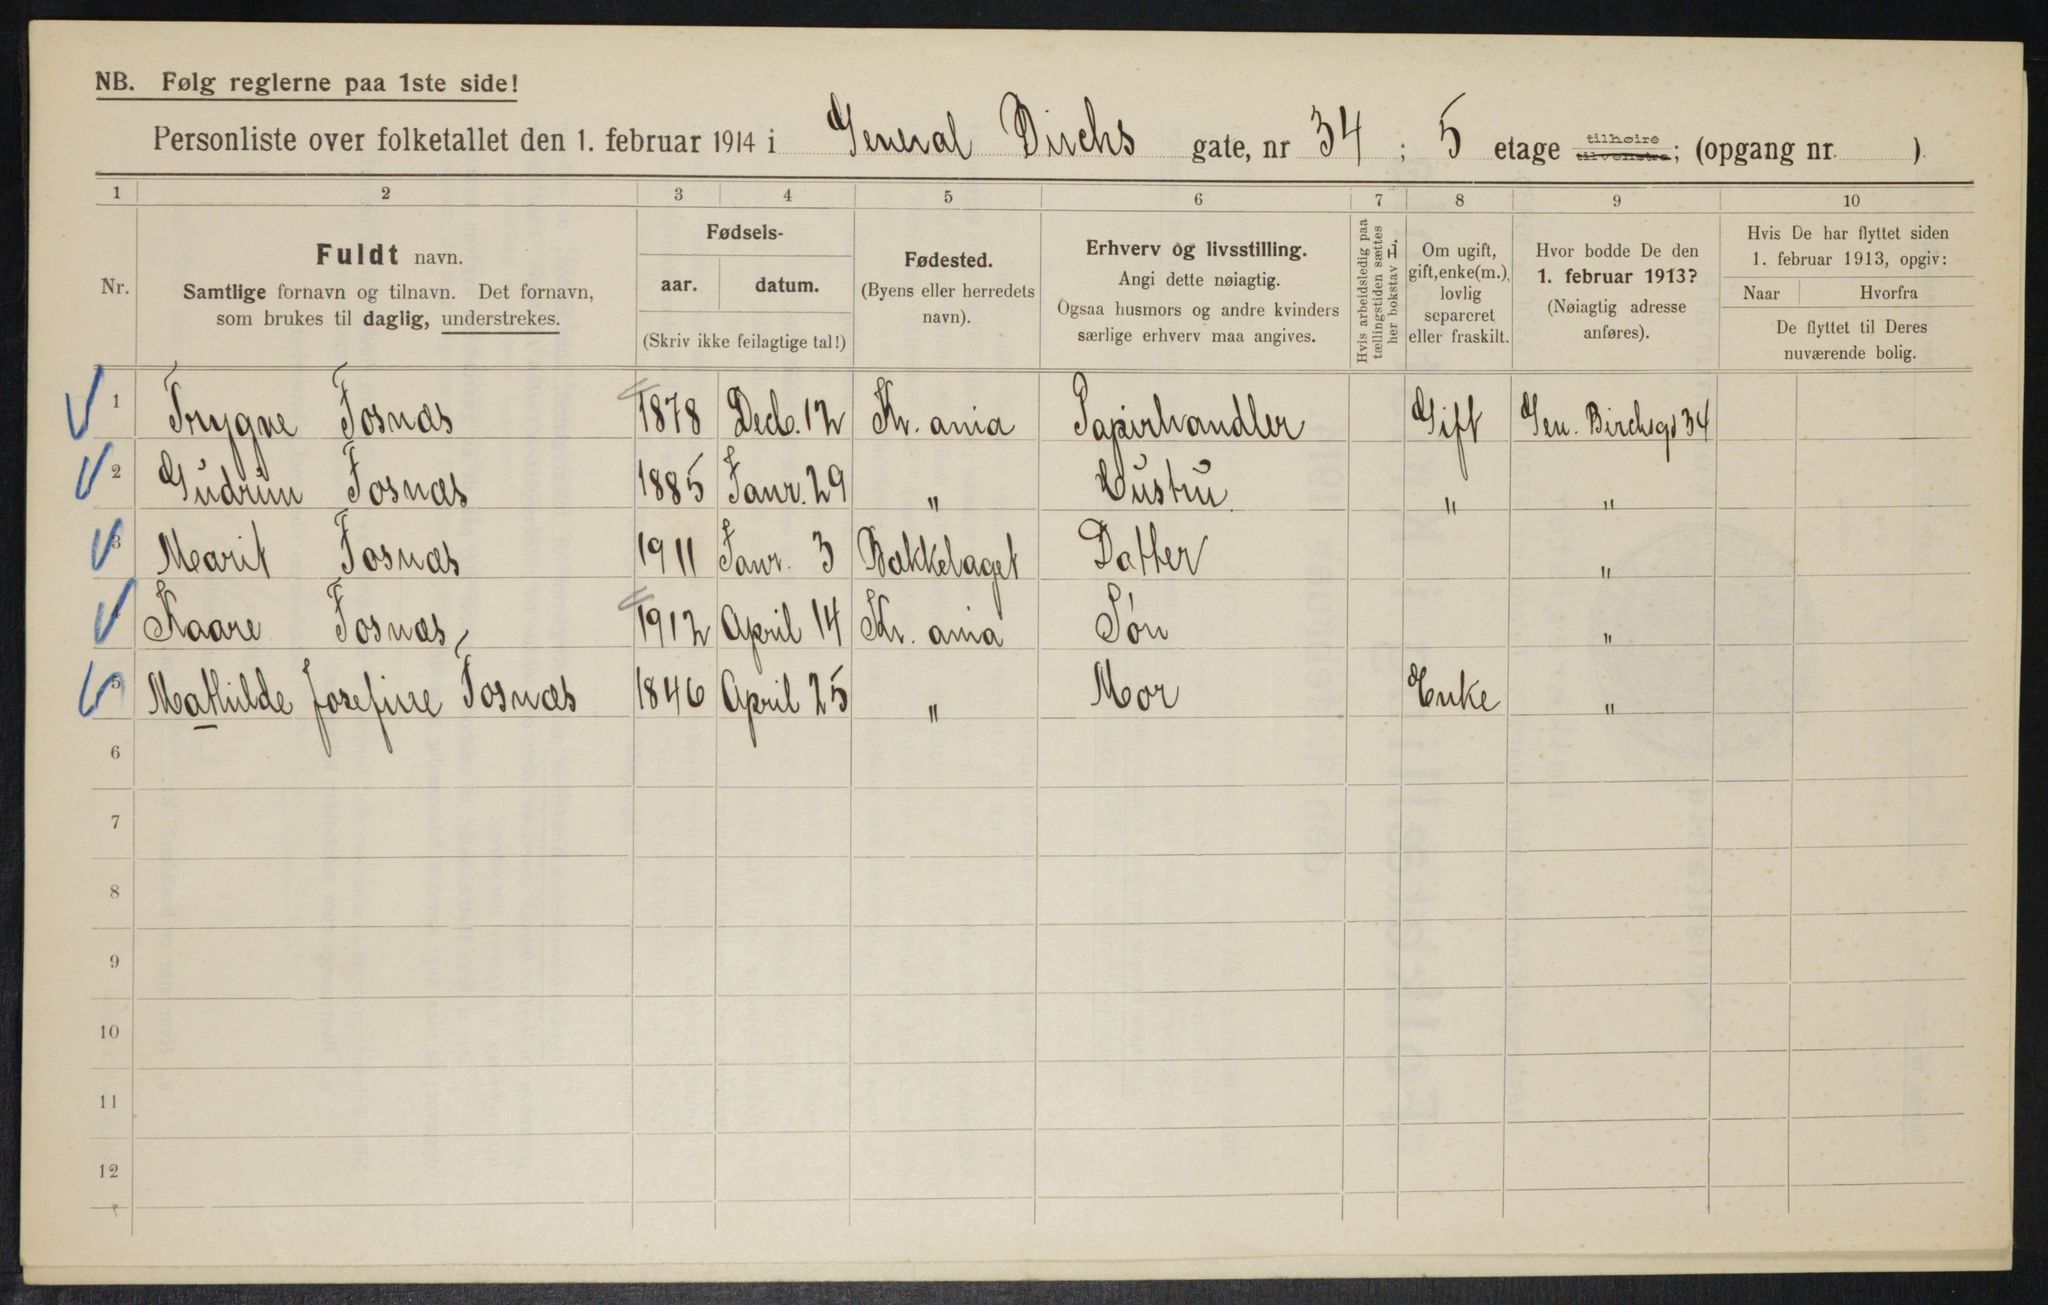 NB. Følg reglerne paa 1ste side!
Personliste over folketallet den 1. februar 1914 i General Birchs gate, nr 34 ; 5 etage tilhøire tilvenstre; (opgang nr. ).
1 2 3 4 5 6 7 8 9 10
Nr.
Fuldt navn.
Samtlige fornavn og tilnavn. Det fornavn,
som brukes til daglig, understrekes.
Fødsels-
aar. datum.
(Skriv ikke feilagtige tal!)
Fødested.
(Byens eller herredets
navn).
Erhverv og livsstilling.
Angi dette nøiagtig.
Ogsaa husmors og andre kvinders
særlige erhverv maa angives.
Hvis arbeidsledig paa
tællingstiden sættes
her bokstav L.
Om ugift,
gift, enke(m.),
lovlig
separeret
eller fraskilt.
Hvor bodde De den
1. februar 1913?
(Nøiagtig adresse
anføres).
Hvis De har flyttet siden
1. februar 1913, opgiv:
Naar Hvorfra
De flyttet til Deres
nuværende bolig.
1 Trygve Fosnæs 1878 Decb. 12 Kr. ania Papirhandler Gift Gen. Birchsgt 34
2 Gudrun Fosnæs 1885 Janr. 29 " Hustru " "
3 Marit Fosnæs 1911 Janr. 3 Bækkelaget Datter "
4 Kaare Fosnæs 1912 April 14 Kr. ania Søn "
5 Mathilde Josefine Fosnæs 1846 April 25 " Mor Enke "
6
7
8
9
10
11
12